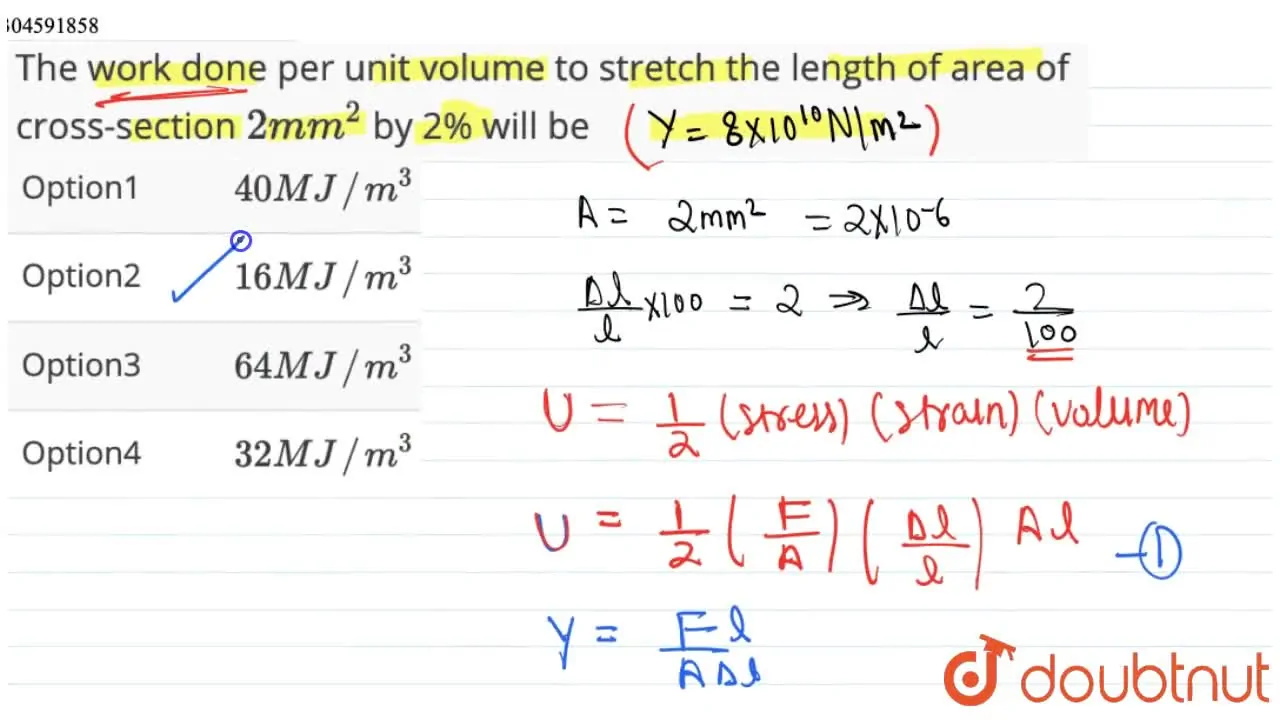 304591858
The work done per unit volume to stretch the length of area of
cross-section 2mm² by 2% will be (Y = 8×10¹⁰N/m²)
Option1 40MJ/m³
Option2 16MJ/m³
Option3 64MJ/m³
Option4 32MJ/m³
A = 2mm² = 2×10⁻⁶
Δl/l ×100 = 2 ⇒ Δl/l = 2/100
U = 1/2 (stress) (strain) (volume)
U = 1/2 (F/A) (Δl/l) Al —①
Y = Fl/AΔl
doubtnut